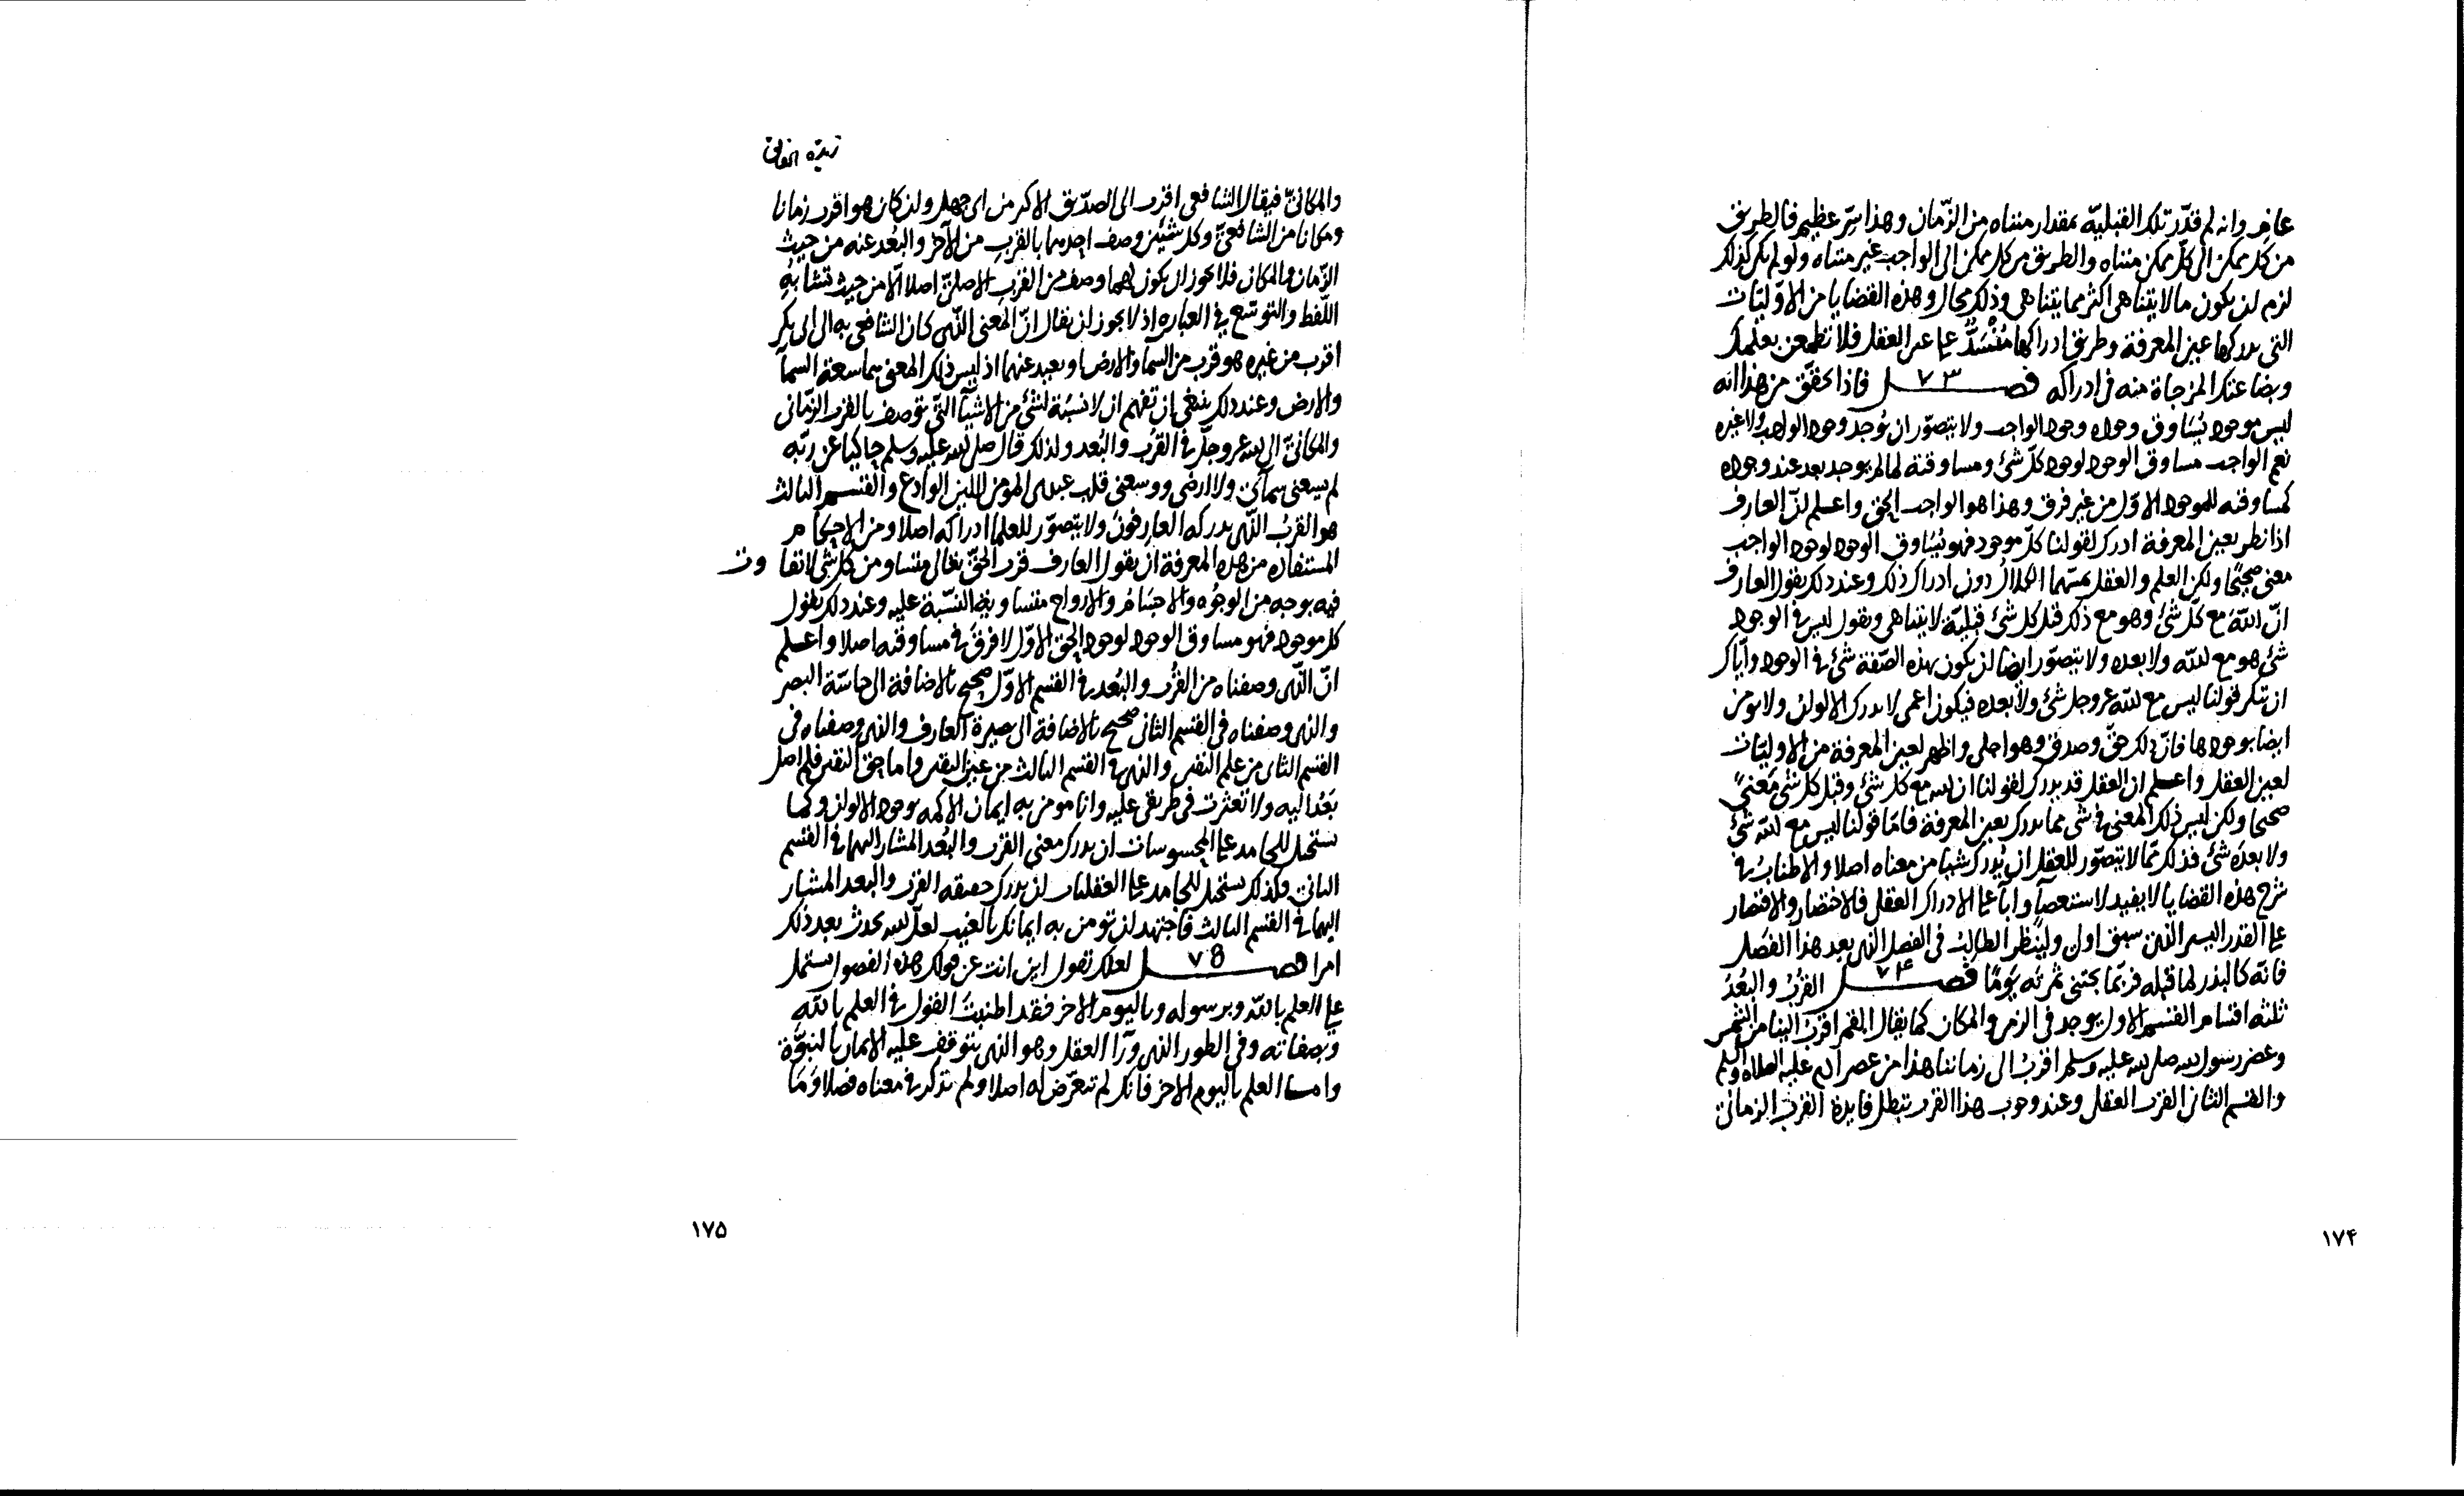 عاقل وانه لم قدّر تلك القبلية بمقدار متناه من الزّمان وهذا سرّ عظيم فالطريق
من كل ممكن الى كلّ ممكن متناه والطريق من كل ممكن الى الواجب غير متناه ولو لم يكن كذلك
لزم ان يكون ما لا يتناهى اكثر مما يتناهى وذلك محال وهذه القضايا من الاوّليّات
التى يدركها عين المعرفة وطريق ادراكها مُنْسَدٌّ على عين العقل فلا تطمعن بعلمك
وبضاعتك المزجاة منه فى ادراكه فصل ٧٣ فاذا تحقّق من هذا انه
ليس موجود يُسَاوق وجوده وجود الواجب ولا يتصوّر ان يُوجد وجود الواجب ولا غيره
نعم الواجب مساوق الوجود لوجود كلّ شئ ومساوقته لما لم يوجد بعد عند وجوده
كمساوقته للموجود الاوّل من غير فرق وهذا هو الواجب الحق واعلم انّ العارف
اذا نظر بعين المعرفة ادرك لقولنا كلّ موجود فهو يُسَاوق الوجود لوجود الواجب
معنى صحيحًا ولكن العلم والعقل يمسّهما الكلال دون ادراك ذلك وعند ذلك يقول العارف
انّ اللّه مع كلّ شئ وهو مع ذلك قبل كل شئ قبليّة لا يتناهى ويقول ليس فى الوجود
شئ هو مع الله ولا بعده ولا يتصوّر ايضا ان يكون بهذه الصّفة شئ فى الوجود وايّاك
ان تنكر قولنا ليس مع الله عز وجل شئ ولا بعده فيكون اعمى لا يدرك الالوان ولا يومن
ايضا بوجودها فانّ ذلك حقّ وصدق وهو اجلى واظهر لعين المعرفة من الاوليّات
لعين العقل واعلم ان العقل قد يدرك لقولنا ان الله مع كل شئ وقبل كل شئ مَعنىً
صحيحا ولكن ليس ذلك المعنى فى شئ مما يدرك بعين المعرفة فامّا قولنا ليس مع الله شئ
ولا بعدَه شئ فذلك ممّا لا يتصوّر للعقل ان يُدرك شيئا من معناه اصلا والاطنابُ فى
شرح هذه القضايا لا يفيد لاستعصآء وابآء على الادراك العقل فالاختصار والاقتصار
على القدر اليسير الذى سبق اولى ولينظر الطالب فى الفصل الذى بعد هذا الفصَل
فانّه كالبذر لما قبله فربّما يجتنى ثمرته يَومًا فصل ٧۴ القُربُ والبُعْدُ
ثلثه اقسام القسم الاول يوجد فى الزمن والمكان كما يقال القمر اقربُ الينا من الشمس
وعصر رسول الله صلى الله عليه وسلم اقربُ الى زماننا هذا من عصر ادم عليه الصلاة والسلم
والقسم الثانى القرب العقلى وعند وجوب هذا القرب تبطل فايدة القرب الزمانىّ
١٧۴
زبدة الحقائق
والمكانىّ فيقال الشافعى اقرب الى الصدّيق الاكبر من ابى جهل وان كان هو اقرب زمانا
ومكانا من الشافعىّ وكل شيئين وصف احدهما بالقرب من الآخر والبُعد عنه من حيث
الزّمان والمكان فلا يجوز ان يكون لهما وصف من القرب الاصلىّ اصلا الّا من حيث تشابه
اللّفظ والتوسّع فى العباره اذ لا يجوز ان يقال انّ المعنى الذى كان الشافعى به الى ابى بكر
اقرب من غيره هو قرب من السمآ والارض او بعيد عنهما اذ ليس ذلك المعنى مما سعته السمآ
والارض وعند ذلك ينبغى ان تفهم ان لا نسبة لشئ من الاشيآ التى توصف بالقرب الزّمانى
والمكانىّ الى الله عز وجلّ فى القُرب والبُعد ولذلك قال صلى الله عليه وسلم حاكيا عن ربّه
لم يسعنى سمآئى ولا ارضى ووسعنى قلب عبدى المومن اللين الوادع والقسم الثالث
هو القربُ الذى يدركه العارفون ولا يتصوّر للعلما ادراكه اصلا ومن الاحكام
المستفاده من هذه المعرفة ان يقول العارف قرب الحقّ تعالى متساو من كل شئ لا تفاوت
فيه بوجه من الوجُوه والاجسَام والارواح متساوية النسّبة عليه وعند ذلك يقول
كل موجود فهو مساوق الوجود لوجود الحق الاوّل لا فرق فى مساوقته اصلا واعلم
انّ الذى وصفناه من القُرب والبُعد فى القسم الاوّل صحيح بالاضافة الى حاسّة البصر
والذى وصفناه فى القسم الثانى صحيح بالاضافة الى بصيرة العارف والذى وصفناه فى
القسم الثانى من علم اليقين والذى فى القسم الثالث من عين اليقين واما حق اليقين فلم اصل
بَعْدُ اليه ولا تعثرت فى طريقى عليه وانا مومن به ايمان الاكمه بوجود الالوان وكما
يستحيل للجامد على المحسوسات ان يدرك معنى القرب والبُعد المشار اليهما فى القسم
الثانى فكذلك يستحيل للجامد على العقليات ان يدرك حقيقه القرب والبعد المشار
اليهما فى القسم الثالث فاجتهد ان تومن به ايمانك بالغيب لعلّ الله يحدث بعد ذلك
امرا فصل ٧۵ لعلك تقول اين انت عن قولك هذه الفصول يشتمل
على العلم باللّه وبرسوله وباليوم الاخر فقد اطنبتَ القول فى العلم باللّه
وبصفاته وفى الطور الذى ورآ العقل وهو الذى يتوقف عليه الايمان بالنبوّة
وامـا العلم باليوم الاخر فانك لم تتعرّض له اصلا ولم تذكر فى معناه فصلا وَمَا
١٧۵